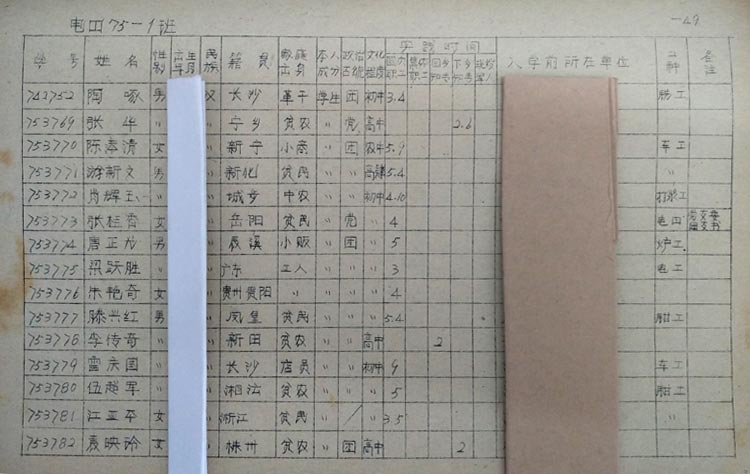 电田75-1班
-49
学习时间
学号 姓名 性别 出生年月 民族 籍贯 家庭出身 本人成分 政治面貌 文化程度 入学前所在单位 工种 备注
742752 陶啄 男 汉 长沙 革干 学生 团 初中 3.4 钱工
753769 张华 〃 〃 宁乡 贫农 〃 党 高中 2.6
753770 陈春清 女 〃 新宁 小商 〃 团 农中 5.9 车工
753771 游新文 男 〃 新化 贫民 〃 〃 5.4 〃
753772 肖辉玉 〃 〃 城步 中农 〃 〃 初中 4.10
753773 张桂香 女 〃 岳阳 贫民 〃 党 〃 4 电田
753774 唐正龙 男 〃 辰溪 小贩 〃 团 〃 5 炉工
753775 梁跃胜 〃 〃 广东 工人 〃 〃 〃 3 电工
753776 朱艳奇 女 〃 贵州贵阳 〃 〃 〃 〃 4
753777 滕兴红 男 〃 凤凰 贫民 〃 〃 〃 5.4 钳工
753778 李传奇 〃 〃 新田 贫农 〃 〃 高中 2
753779 雷庆国 〃 〃 长沙 店员 〃 〃 初中 9 车工
753780 伍超军 〃 〃 湘 贫农 〃 〃 〃 5 钳工
753781 江亚平 女 〃 浙江 贫民 〃 / 〃 3.5 〃
753782 夏映玲 女 〃 株州 贫农 〃 团 高中 2